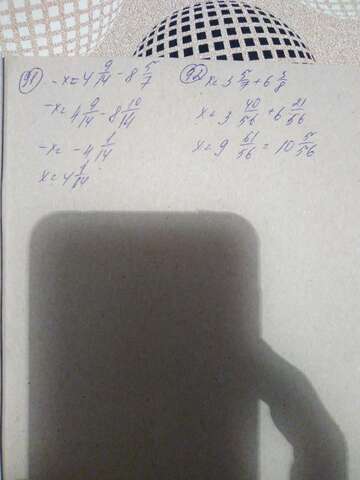 91) -x=4 9/14 - 8 5/7
-x= 4 9/14 - 8 10/14
-x= -4 1/14
x=4 1/14
92) x=3 5/7+6 3/8
x=3 40/56+6 21/56
x=9 61/56=10 5/56